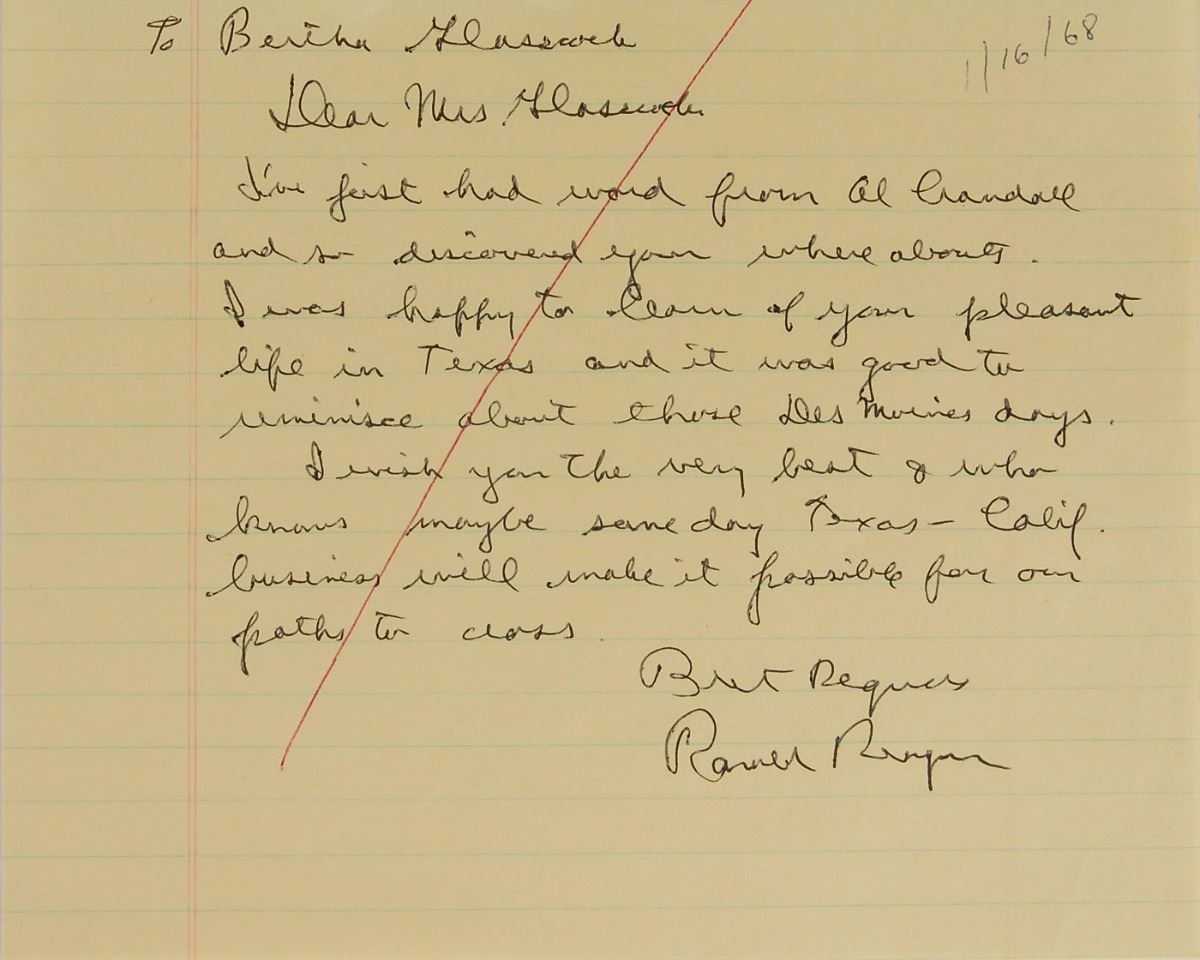 To Bertha Glasscock
1/16/68
Dear Mrs. Glasscock
I've just had word from Al Crandall
and so discovered your where abouts.
I was happy to learn of your pleasant
life in Texas and it was good to
reminisce about those Des Moines days.
I wish you the very best & who
knows maybe some day Texas – Calif.
business will make it possible for our
paths to cross.
Best Regards
Ronald Reagan